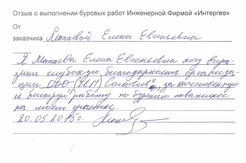 Отзыв о выполнении буровых работ Инженерной Фирмой «Интергео»
От
заказчика Мохавой Елены Евгеньевны
Я Мохаева Елена Евгеньевна хочу выра-
зить глубокую благодарность организа-
ции ООО за качественную
и быструю работу по бурению скважины
на моём участке.
20.05.2015г.